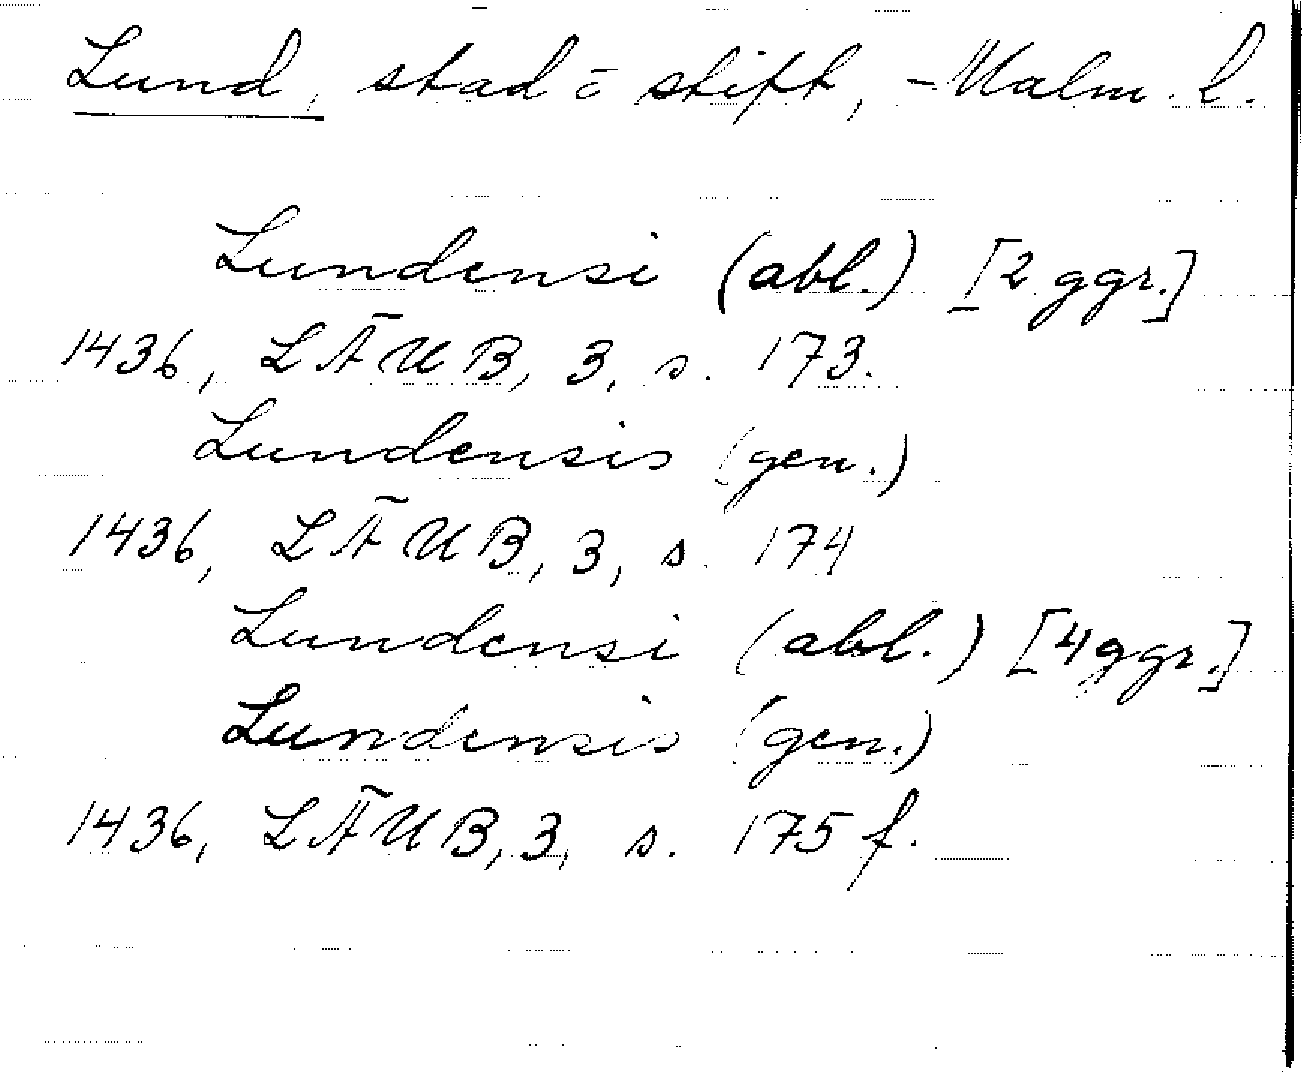 Lund, stad o stift, Malm. l.
Lundensi (abl.) [2 ggr.]
1436, LÄUB, 3, s. 173.
Lundensis (gen.)
1436, LÄUB, 3, s. 174
Lundensi (abl.) [4 ggr.]
Lundensis (gen.)
1436, LÄUB, 3, s. 175 f.